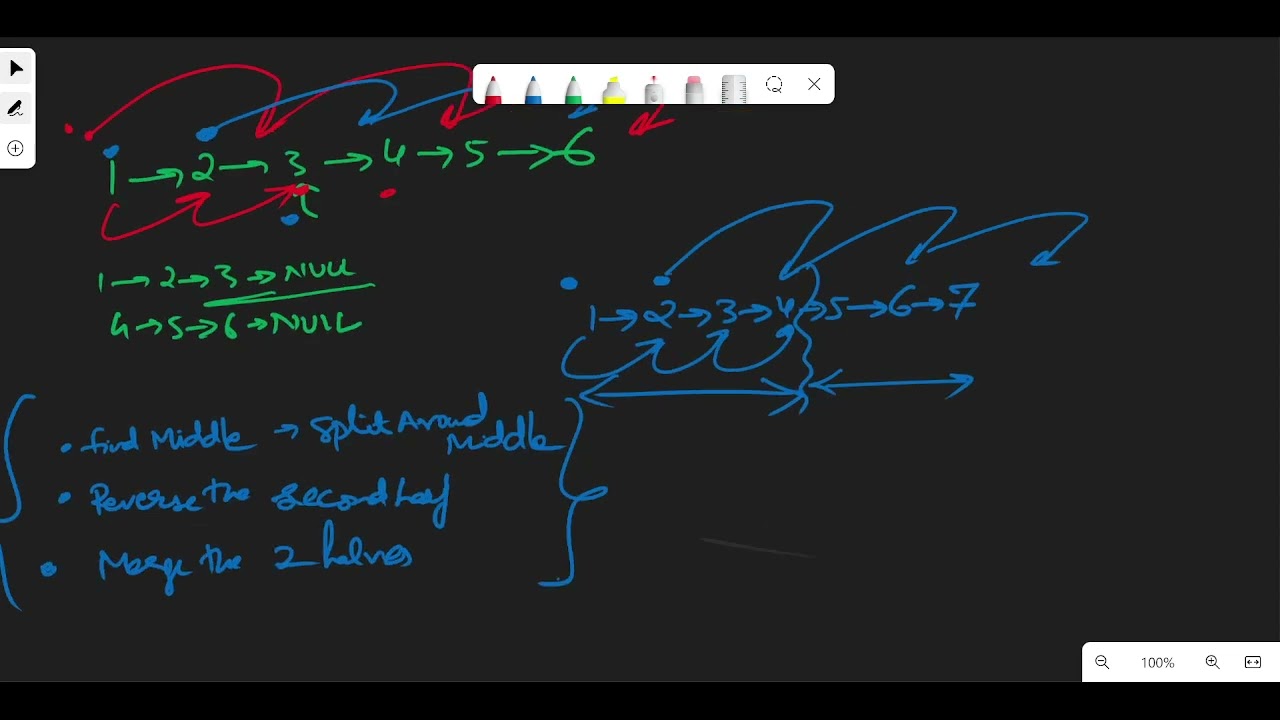 1 → 2 → 3 → 4 → 5 → 6
1 → 2 → 3 → NULL
4 → 5 → 6 → NULL
1 → 2 → 3 → 4 → 5 → 6 → 7
• find Middle → Split Around
Middle
• Reverse the second half
• Merge the 2 halves
100%